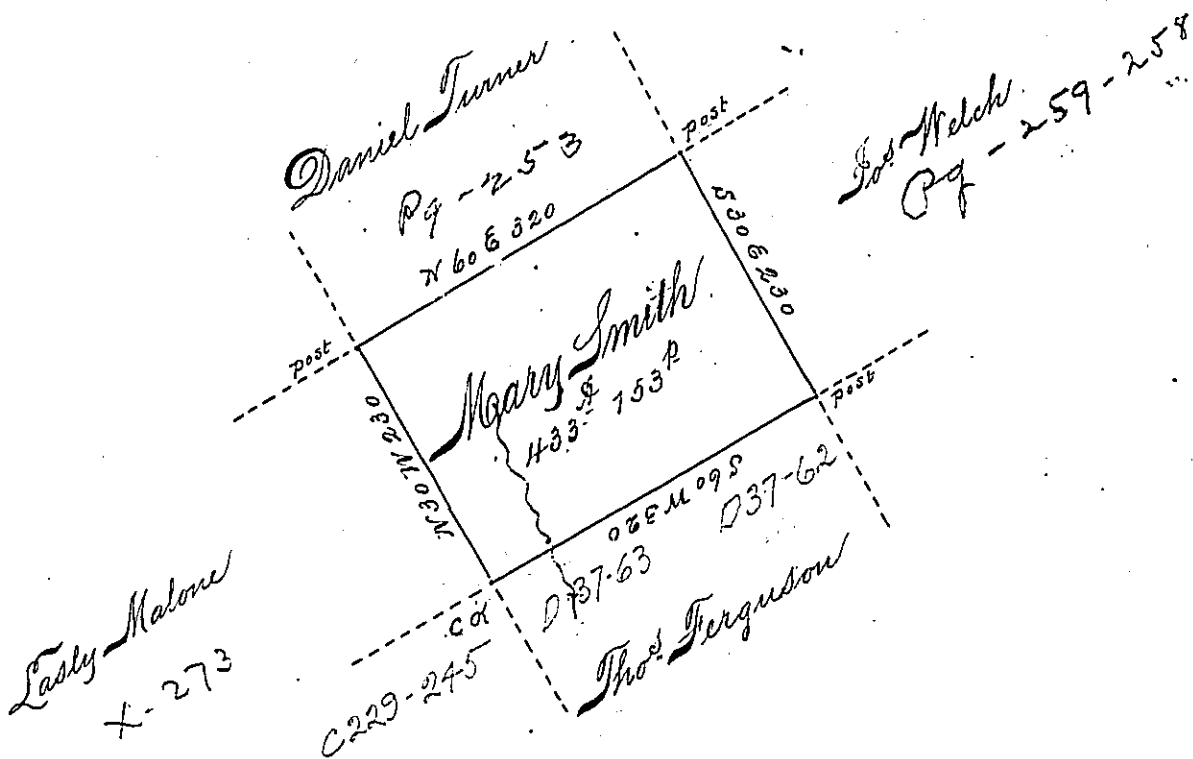 Daniel Turner
Pg - 253
N 60 E 320
post
Jos. Welch
Pg - 259 - 258
S 30 E 230
post
Mary Smith
433 A 153 P
N 30 W 230
post
S 60 W 320
D37-62
D37-63
C229-245
Thos. Ferguson
Lasly Malone
X - 273